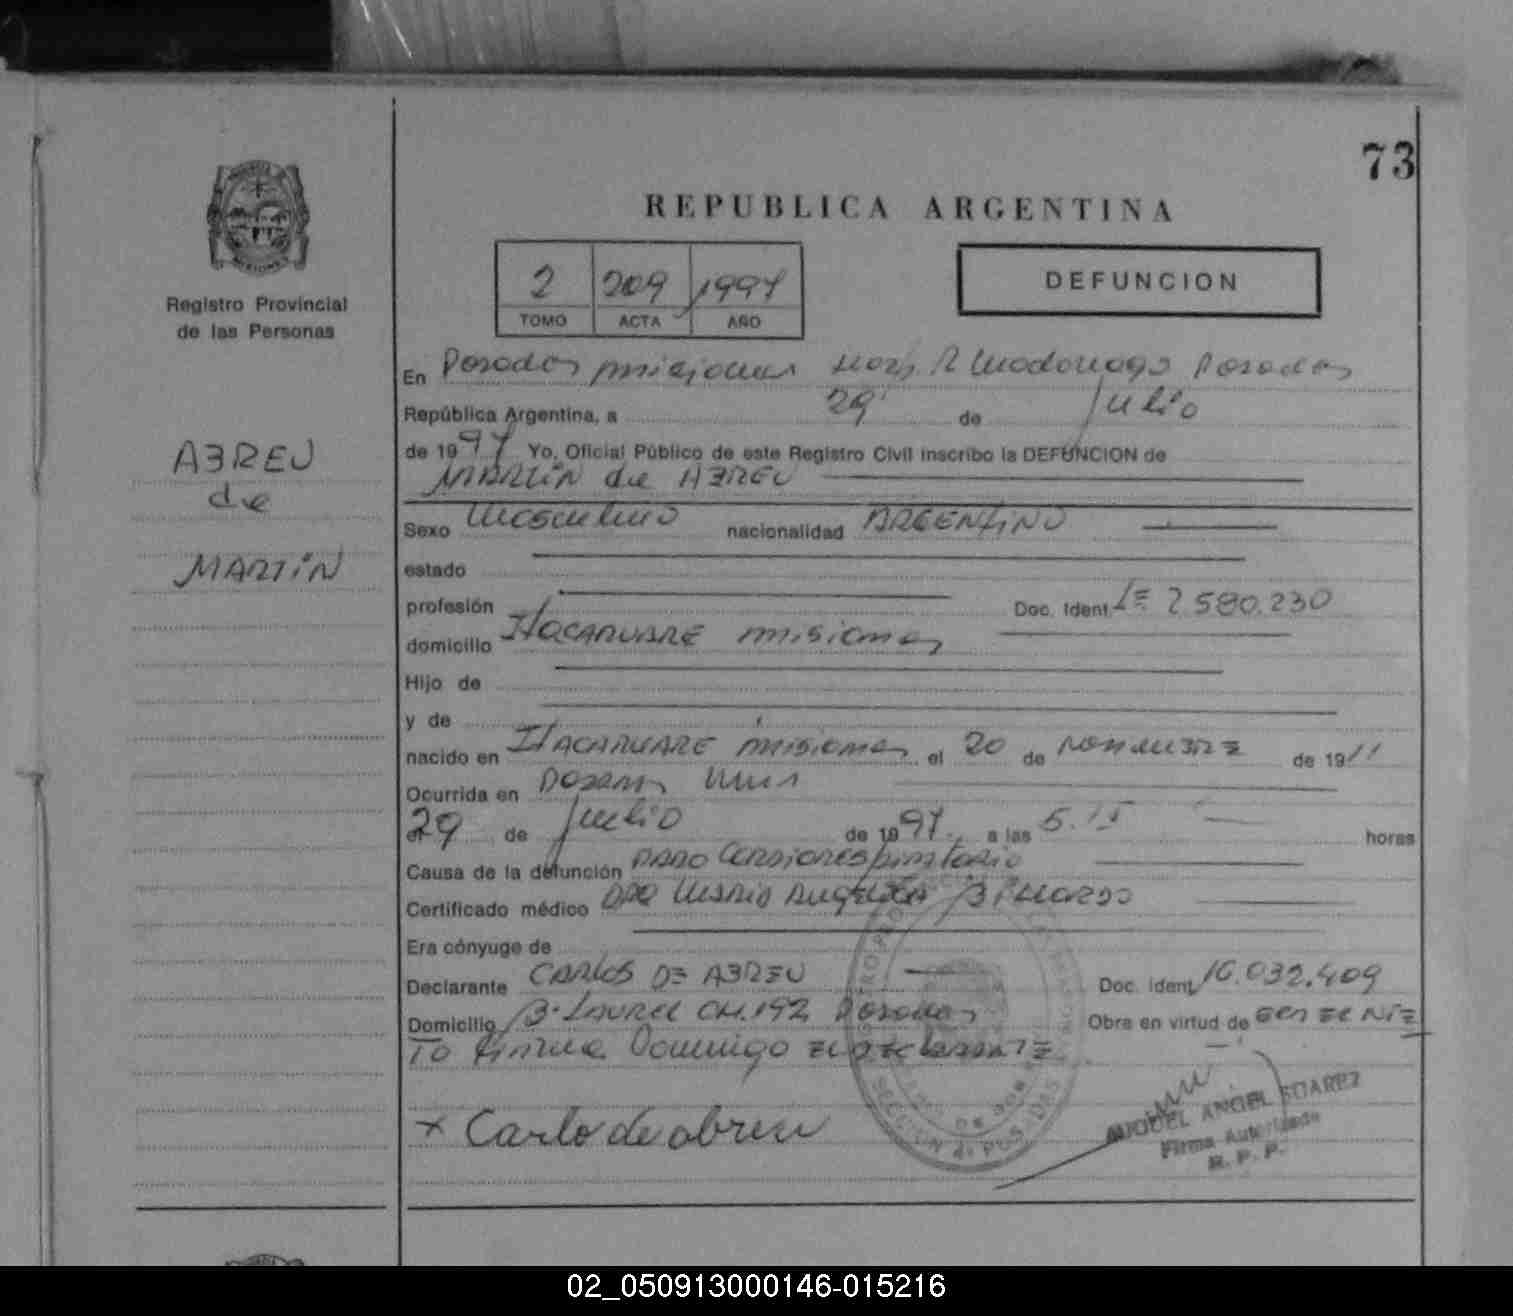 73
REPUBLICA ARGENTINA
MISIONES
Registro Provincial
de las Personas
2 209 1997
TOMO ACTA AÑO
DEFUNCION
ABREU
de
MARTiN
En Posadas misiones Hosp. R Madariaga Posadas
República Argentina, a 29 de Julio
de 1997 Yo, Oficial Público de este Registro Civil inscribo la DEFUNCION de
MARTiN de ABREU
Sexo Masculino nacionalidad ARGENTINO
estado
profesión Doc. Ident. LE 7.580.230
domicilio ITACARUARE misiones
Hijo de
y de
nacido en ITACARUARE misiones el 20 de noviembre de 1911
Ocurrida en Posadas Mnes
el 29 de Julio de 1997. a las 5.15 horas
Causa de la defunción PARO Cardiorespiratorio
Certificado médico DRA Maria Angelica
Era cónyuge de
Declarante CARLOS DE ABREU Doc. Ident. 16.032.409
Domicilio B. LAUREL CH.192 Posadas Obra en virtud de ser el NiE
TO firma Domingo el declarante
x Carlo de abreu
SECCION 4ª POSADAS
MIGUEL ANGEL SUAREZ
Firma Autorizada
R. P. P.
02_050913000146-015216